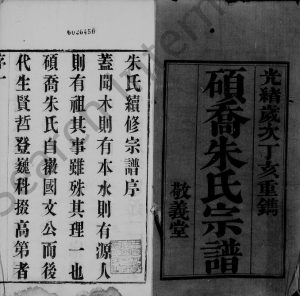 光緒歲次丁亥重鐫
碩喬朱氏宗譜
敬義堂
朱氏續修宗譜序
蓋聞木則有本水則有源人
則有祖其事雖殊其理一也
碩喬朱氏自徽國文公而後
代生賢哲登巍科掇高第者
序一